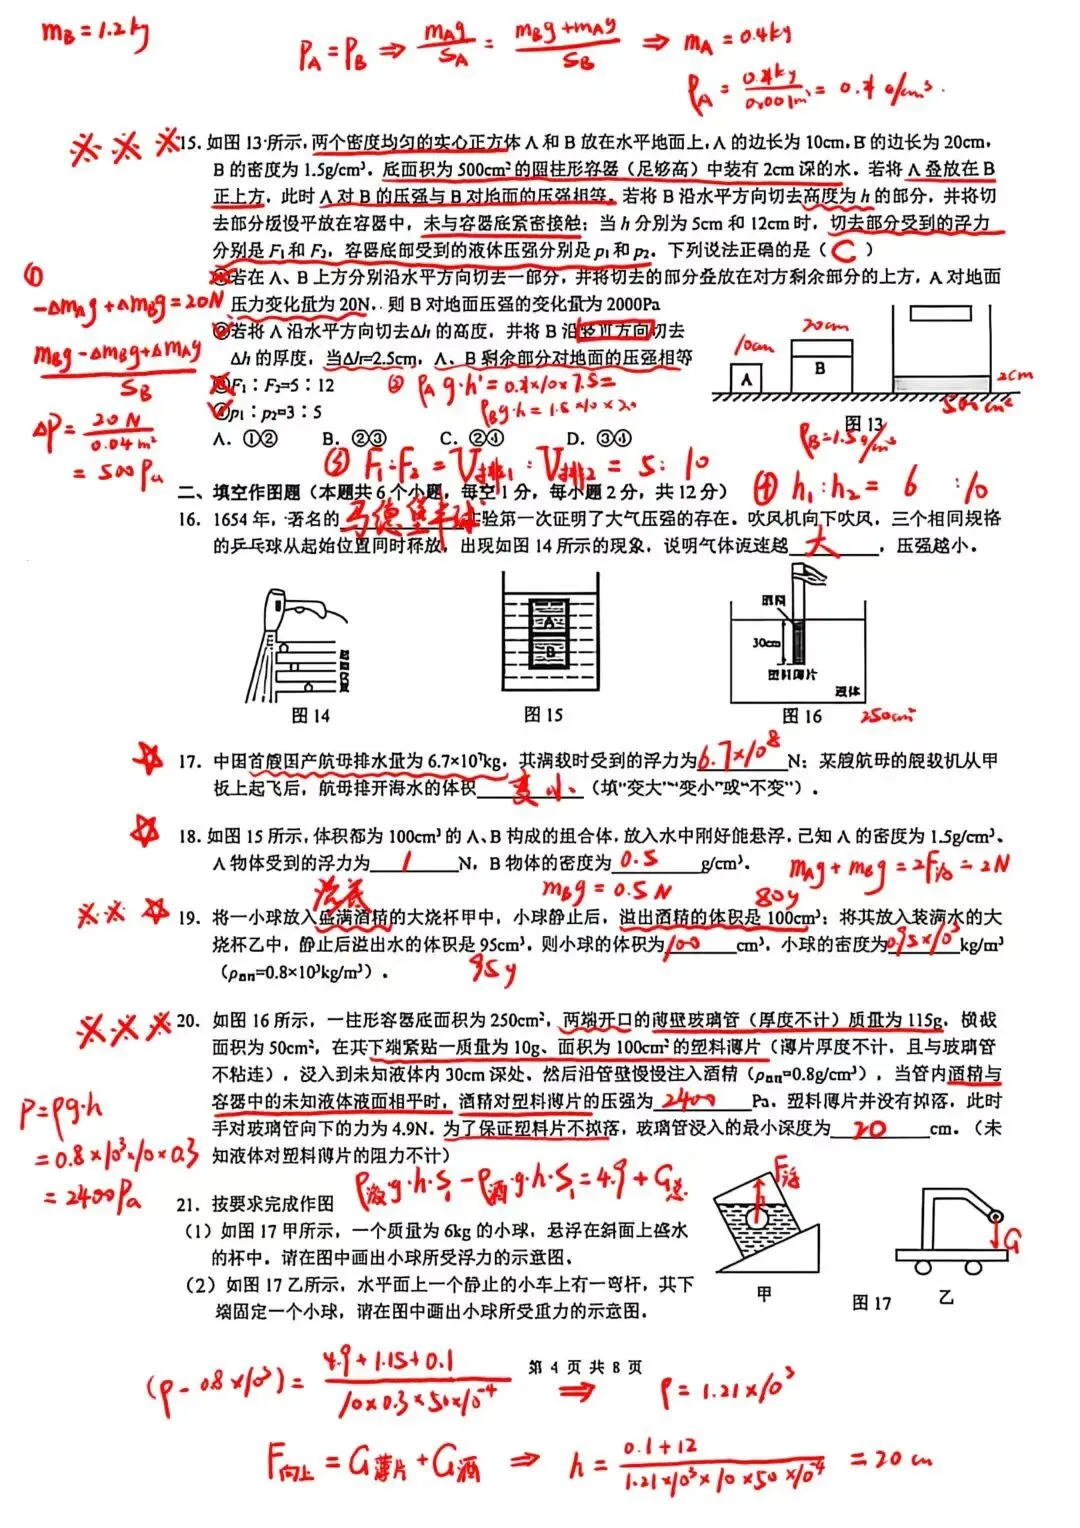 m_B = 1.2kg
P_A = P_B ⇒ m_Ag/S_A = (m_Bg+m_Ag)/S_B ⇒ m_A = 0.4kg
ρ_A = 0.4kg/0.001m³ = 0.4 g/cm³.
15. 如图 13 所示，两个密度均匀的实心正方体 A 和 B 放在水平地面上，A 的边长为 10cm，B 的边长为 20cm，
B 的密度为 1.5g/cm³。底面积为 500cm²的圆柱形容器（足够高）中装有 2cm 深的水。若将 A 叠放在 B
正上方，此时 A 对 B 的压强与 B 对地面的压强相等。若将 B 沿水平方向切去高度为 h 的部分，并将切
去部分缓慢平放在容器中，未与容器底紧密接触；当 h 分别为 5cm 和 12cm 时，切去部分受到的浮力
分别是 F₁和 F₂，容器底部受到的液体压强分别是 p₁和 p₂。下列说法正确的是（ C ）
①若在 A、B 上方分别沿水平方向切去一部分，并将切去的部分叠放在对方剩余部分的上方，A 对地面
压力变化量为 20N，则 B 对地面压强的变化量为 2000Pa
②若将 A 沿水平方向切去Δh 的高度，并将 B 沿竖直方向切去
Δh 的厚度，当Δh=2.5cm，A、B 剩余部分对地面的压强相等
③F₁∶F₂=5∶12
④p₁∶p₂=3∶5
A. ①② B. ②③ C. ②④ D. ③④
①
-Δm_Ag+Δm_Bg=20N
(m_Bg-Δm_Bg+Δm_Ag)/S_B
ΔP = 20N/0.04m²
= 500Pa
③ F₁:F₂ = V排₁:V排₂ = 5:10
④ h₁:h₂ = 6:10
10cm
20cm
A
B
2cm
500cm²
图 13
ρ_B=1.5g/cm³
二、填空作图题（本题共 6 个小题，每空 1 分，每小题 2 分，共 12 分）
16. 1654 年，著名的马德堡半球实验第一次证明了大气压强的存在。吹风机向下吹风，三个相同规格
的乒乓球从起始位置同时释放，出现如图 14 所示的现象，说明气体流速越 大 ，压强越小。
图 14
A
B
图 15
30cm
塑料薄片
液体
250cm²
图 16
17. 中国首艘国产航母排水量为 6.7×10⁷kg，其满载时受到的浮力为 6.7×10⁸ N；某艘航母的舰载机从甲
板上起飞后，航母排开海水的体积 变小 （填“变大”“变小”或“不变”）。
18. 如图 15 所示，体积都为 100cm³的 A、B 构成的组合体，放入水中刚好能悬浮，已知 A 的密度为 1.5g/cm³、
A 物体受到的浮力为 1 N，B 物体的密度为 0.5 g/cm³。
m_Ag+m_Bg=2F浮=2N
m_Bg=0.5N
沉底
80g
19. 将一小球放入盛满酒精的大烧杯甲中，小球静止后，溢出酒精的体积是 100cm³；将其放入装满水的大
烧杯乙中，静止后溢出水的体积是 95cm³，则小球的体积为 100 cm³，小球的密度为 0.95×10³ kg/m³
（ρ酒精=0.8×10³kg/m³）。
95g
20. 如图 16 所示，一柱形容器底面积为 250cm²，两端开口的薄壁玻璃管（厚度不计）质量为 115g，横截
面积为 50cm²，在其下端紧贴一质量为 10g、面积为 100cm²的塑料薄片（薄片厚度不计，且与玻璃管
不粘连），浸入到未知液体内 30cm 深处，然后沿管壁慢慢注入酒精（ρ酒精=0.8g/cm³），当管内酒精与
容器中的未知液体液面相平时，酒精对塑料薄片的压强为 2400 Pa，塑料薄片并没有掉落，此时
手对玻璃管向下的力为 4.9N。为了保证塑料片不掉落，玻璃管浸入的最小深度为 20 cm。（未
知液体对塑料薄片的阻力不计）
P=ρg·h
=0.8×10³×10×0.3
=2400Pa
ρ液g·h·S₁-ρ酒g·h·S₁=4.9+G总
21. 按要求完成作图
（1）如图 17 甲所示，一个质量为 6kg 的小球，悬浮在斜面上盛水
的杯中。请在图中画出小球所受浮力的示意图。
（2）如图 17 乙所示，水平面上一个静止的小车上有一弯杆，其下
端固定一个小球，请在图中画出小球所受重力的示意图。
F浮
甲
G
乙
图 17
第 4 页 共 8 页
(ρ-0.8×10³)=(4.9+1.15+0.1)/(10×0.3×50×10⁻⁴) ⇒ ρ=1.21×10³
F向上=G薄片+G酒 ⇒ h=(0.1+12)/(1.21×10³×10×50×10⁻⁴)=20cm